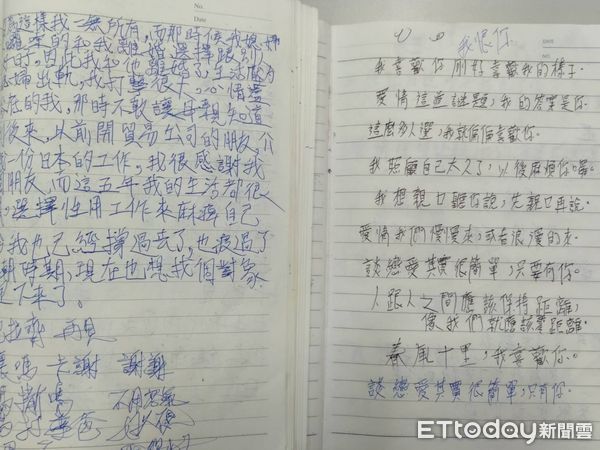 這樣我一無所有，而那時候我媳婦
的和我離婚選擇跟別
時，因此我和他離婚了，生活因為
媳婦出軌，我打擊很大。心情還
在的我，那時不敢讓母親知道
後來，以前開貿易公司的朋友，介
一份日本的工作，我很感謝我
朋友，而這五年我的生活都很
，選擇性用工作來麻痺自己
我也已經撐過去了，也撐過了
期時期，現在也想找個對象
定下來了。
再見
嗎 卡謝 謝謝
不用客氣
No.
Date
我恨你
我喜歡你剛好喜歡我的樣子。
愛情這道謎題，我的答案是你。
這麼多人選，我就偏偏喜歡你。
我照顧自己太久了，以後麻煩你囉。
我想親口聽你說，先親口再說。
愛情我們慢慢來，或者浪漫的來。
談戀愛其實很簡單，只要有你。
人跟人之間應該保持距離，
像我們就應該零距離。
春風十里，我喜歡你。
談戀愛其實很簡單，只有你。
ETtoday新聞雲